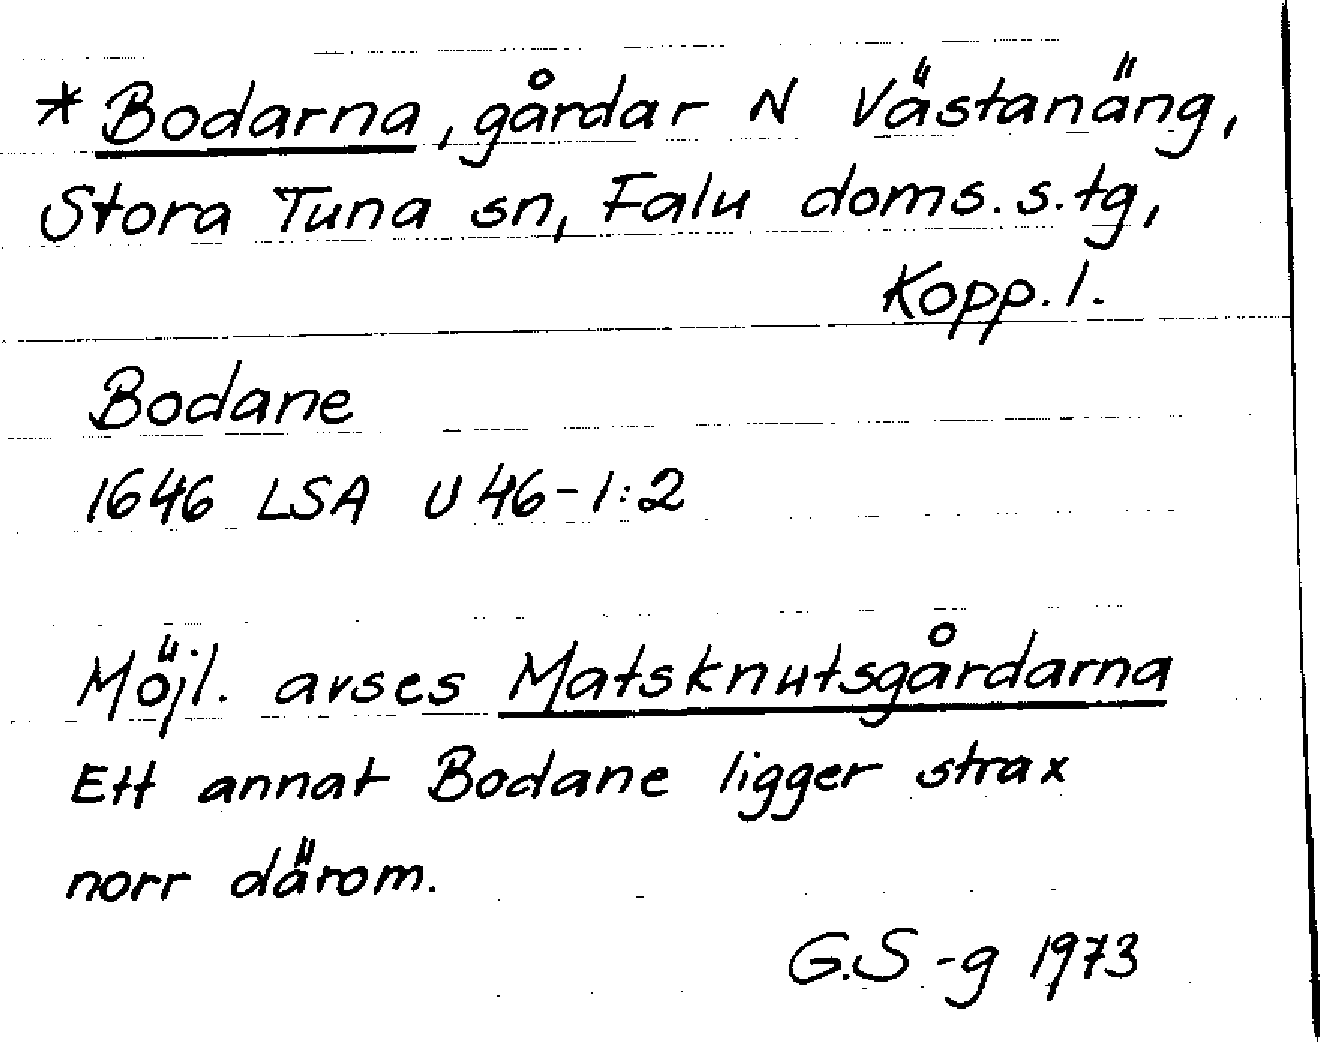 * Bodarna, gårdar N Västanäng,
Stora Tuna sn, Falu doms.s.tg,
Kopp. l.
Bodane
1646 LSA U 46-1:2
Möjl. avses Matsknutsgårdarna
Ett annat Bodane ligger strax
norr därom.
G.S-g 1973